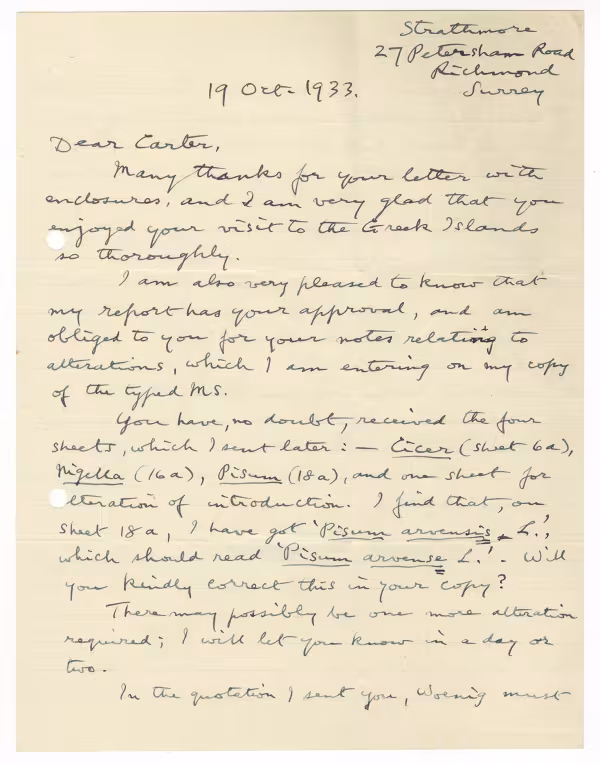 Strathmore
27 Petersham Road
Richmond
Surrey
19 Oct. 1933.
Dear Carter,
Many thanks for your letter with
enclosures, and I am very glad that you
enjoyed your visit to the Greek Islands
so thoroughly.
I am also very pleased to know that
my report has your approval, and am
obliged to you for your notes relating to
alterations, which I am entering on my copy
of the typed MS.
You have, no doubt, received the four
sheets, which I sent later: — Cicer (sheet 6a),
Nigella (16a), Pisum (18a), and one sheet for
alteration of introduction. I find that, on
sheet 18a, I have got 'Pisum arvensis L.',
which should read 'Pisum arvense L.'. Will
you kindly correct this in your copy?
There may possibly be one more alteration
required; I will let you know in a day or
two.
In the quotation I sent you, Woenig must